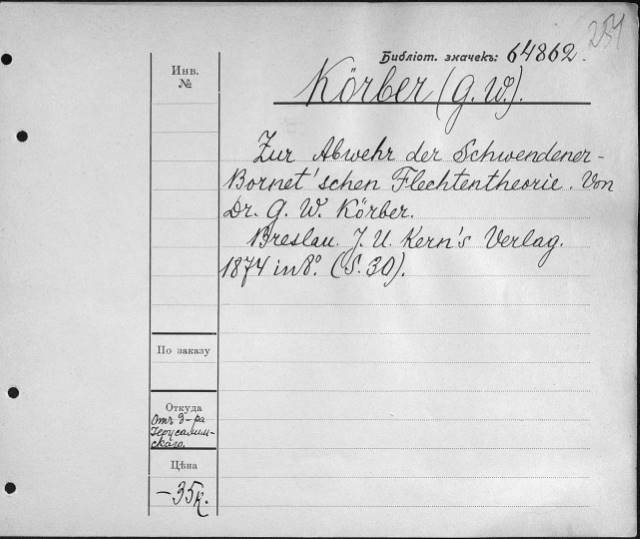 254
Библіот. значекъ: 64862.
Инв.
№
Körber (G. W.).
Zur Abwehr der Schwendener-
Bornet'schen Flechtentheorie. Von
Dr. G. W. Körber.
Breslau. J. U. Kern's Verlag.
1874 in 8º. (S. 30).
По заказу
Откуда
Отъ д-ра
Іерусалим-
скаго.
Цѣна
–35к.